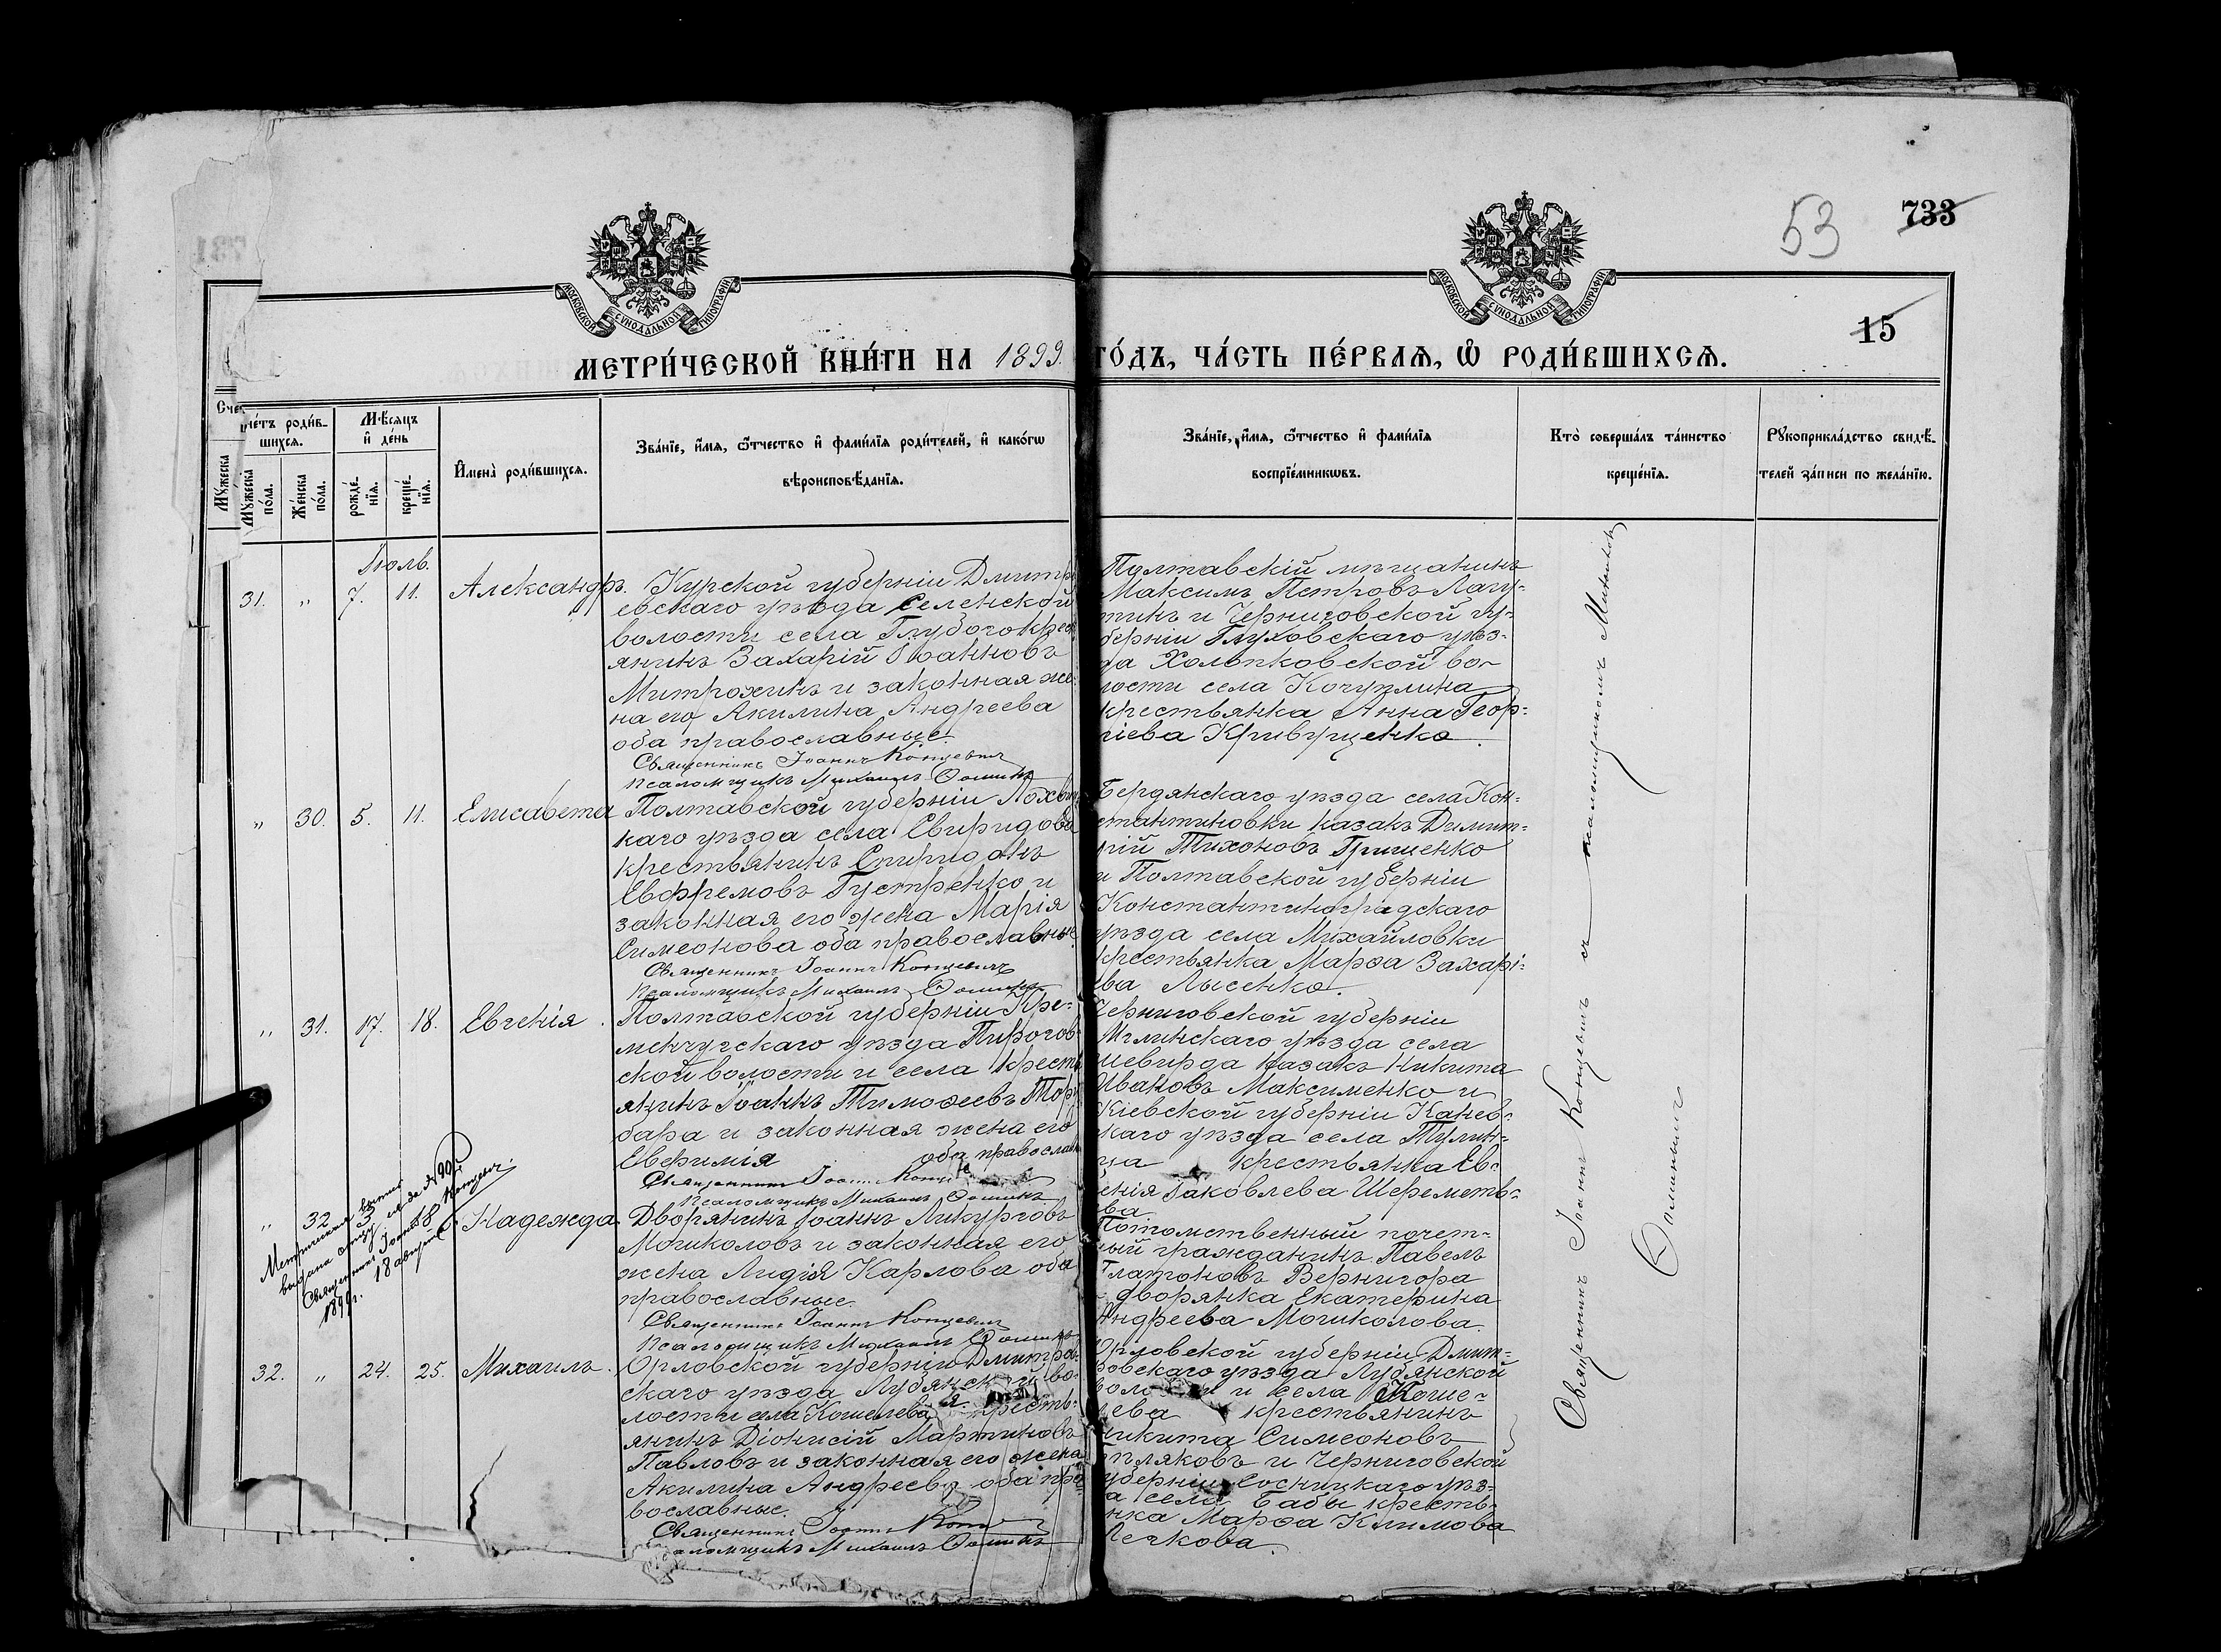 53
733
15
МОСКОВСКОЙ СѴНОДАЛЬНОЙ ТИПОГРАФІИ
МОСКОВСКОЙ СѴНОДАЛЬНОЙ ТИПОГРАФІИ
МЕТРИ́ЧЕСКОЙ КНИ́ГИ НА 1899.
ГО́ДЪ, ЧА́СТЬ ПЕ́РВАѦ, Ѡ РОДИ́ВШИХСѦ.
Сче
Мꙋжеска
счётъ роди́в-
шихсѧ.
Мꙋжеска по́ла.
Же́нска по́ла.
Мѣ́сѧцъ
и де́нь
рожде́-нїѧ.
креще́-нїѧ.
И́мена̀ роди́вшихсѧ.
Зва́нїе, и́мѧ, ѻ҆́тчество и҆ фами́лїѧ роди́телей, и҆ како́гѡ
вѣроисповѣ́данїѧ.
Зва́нїе, и́мѧ, ѻ҆́тчество и҆ фами́лїѧ
воспрїе́мникѡвъ.
Кто̀ соверша́лъ та́инство
креще́нїѧ.
Рꙋкоприкла́дство свидѣ́-
телей за́писи по жела́нїю.
Іюль.
31. " 7. 11. Александръ.
Курской губерніи Дмитрі
евскаго уѣзда Селенской
волости села Глубого крест
янинъ Захарій Іоанновъ
Митрохинъ и законная же-
на его Акилина Андреева
оба православные.
Священникъ Іоаннъ Концевич
Псаломщикъ Михаилъ Ѳоминъ
Полтавскій мѣщанинъ
Максимъ Петровъ Лагу-
тинъ и Черниговской гу-
берніи Глуховскаго уѣз-
да Холопковской во-
лости села
крестьянка Анна Геор-
гіева Кривущенко.
" 30. 5. 11. Елисавета
Полтавской губерніи Лохвиц
каго уѣзда села Свиридова
крестьянинъ Спиридонъ
Евфремовъ и
законная его жена Марія
Симеонова оба православные.
Священникъ Іоаннъ Концевичъ
Псаломщикъ Михаилъ Ѳоминъ
Бердянскаго уѣзда села Кон-
стантиновки казакъ Димит-
рій Тихоновъ Грищенко
и Полтавской губерніи
Константиноградскаго
уѣзда села Михайловки
крестьянка Марѳа Захарі-
ева Лысенко.
" 31. 17. 18. Евгенія.
Полтавской губерніи Кре-
менчугскаго уѣзда Пирогов-
ской волости и села крестъ
янинъ Іоаннъ Тимоѳеевъ Тор
бара и законная жена его
Евфимія оба православ
Священникъ Іоаннъ
Псаломщикъ Михаилъ Ѳоминъ
Черниговской губерніи
Мглинскаго уѣзда села
казакъ Никита
Ивановъ Максименко и
Кіевской губерніи Канев-
скаго уѣзда села Тулин-
ца крестьянка Ев-
генія Яковлева Шереметь-
ва.
" 32 3 18 Надежда.
Метрическая выпись
выдана отцу за № 90
Священникъ Іоаннъ Концевич.
1899г. 18
Дворянинъ Іоаннъ Ликурговъ
Могиколовъ и законная его
жена Лидія Карлова оба
православные.
Священникъ Іоаннъ Концевич
Псаломщикъ Михаилъ Ѳоминъ
Потомственный почет-
ный гражданинъ Павелъ
Платоновъ Вернигора
дворянка Екатерина
Андреева Могиколова.
32. " 24. 25. Михаилъ.
Орловской губерніи Дмитро-
скаго уѣзда Лубянской во-
лости села Кошелева кресть-
янинъ Діонисій Мартиновъ
Павловъ и законная его жена
Акилина Андреева оба пра-
вославные.
Священникъ Іоаннъ
Псаломщикъ Михаилъ Ѳоминъ
Орловской губерніи Дмит-
ровскаго уѣзда Лубянской
волости и села Коше-
лева крестьянинъ
Никита Симеоновъ
и Черниговской
губерніи Сосницкаго уѣз-
да села Бабы кресть-
янка Марѳа Климова
Лечкова.
Священникъ Іоаннъ Концевичъ съ псаломщикомъ Михаиломъ
Ѳоминымъ